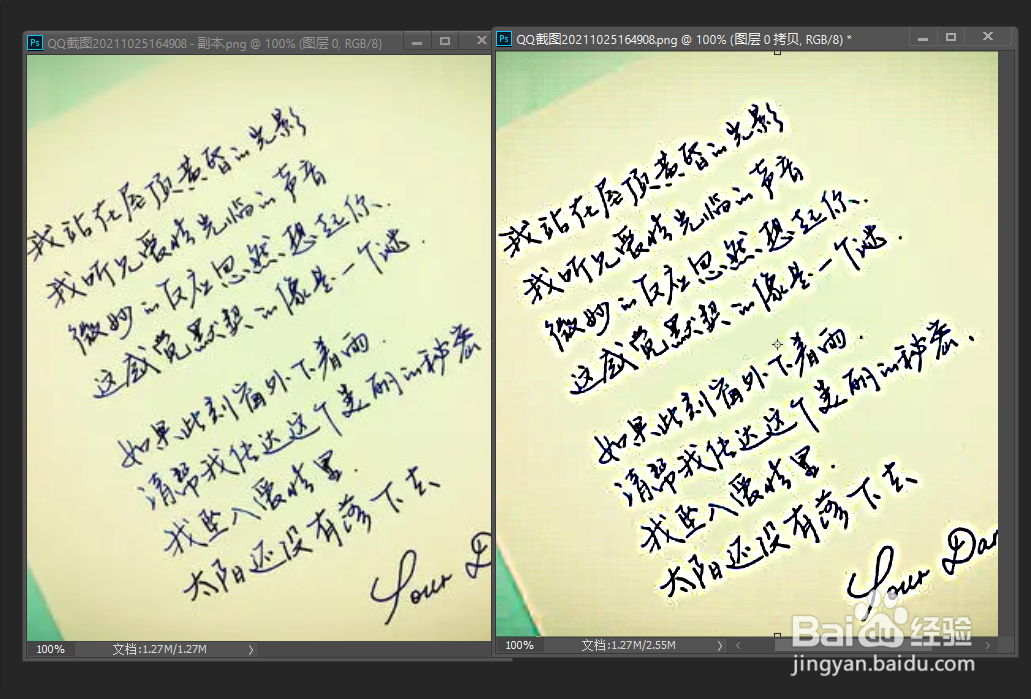 QQ截图20211025164908 - 副本.png @ 100% (图层 0, RGB/8)
我站在屋顶黄昏的光影
我听见爱情光临的声音
微妙的反应忽然想起你.
这感觉默契的像是一个谜.
如果此刻窗外下着雨.
请帮我传达这个美丽的秘密
我坠入爱情里.
太阳还没有落下去
Your D
100%
文档:1.27M/1.27M
QQ截图20211025164908.png @ 100% (图层 0 拷贝, RGB/8) *
我站在屋顶黄昏的光影
我听见爱情光临的声音
微妙的反应忽然想起你.
这感觉默契的像是一个谜.
如果此刻窗外下着雨.
请帮我传达这个美丽的秘密.
我坠入爱情里.
太阳还没有落下去
Your Dar
100%
文档:1.27M/2.55M
Baidu经验
jingyan.baidu.com